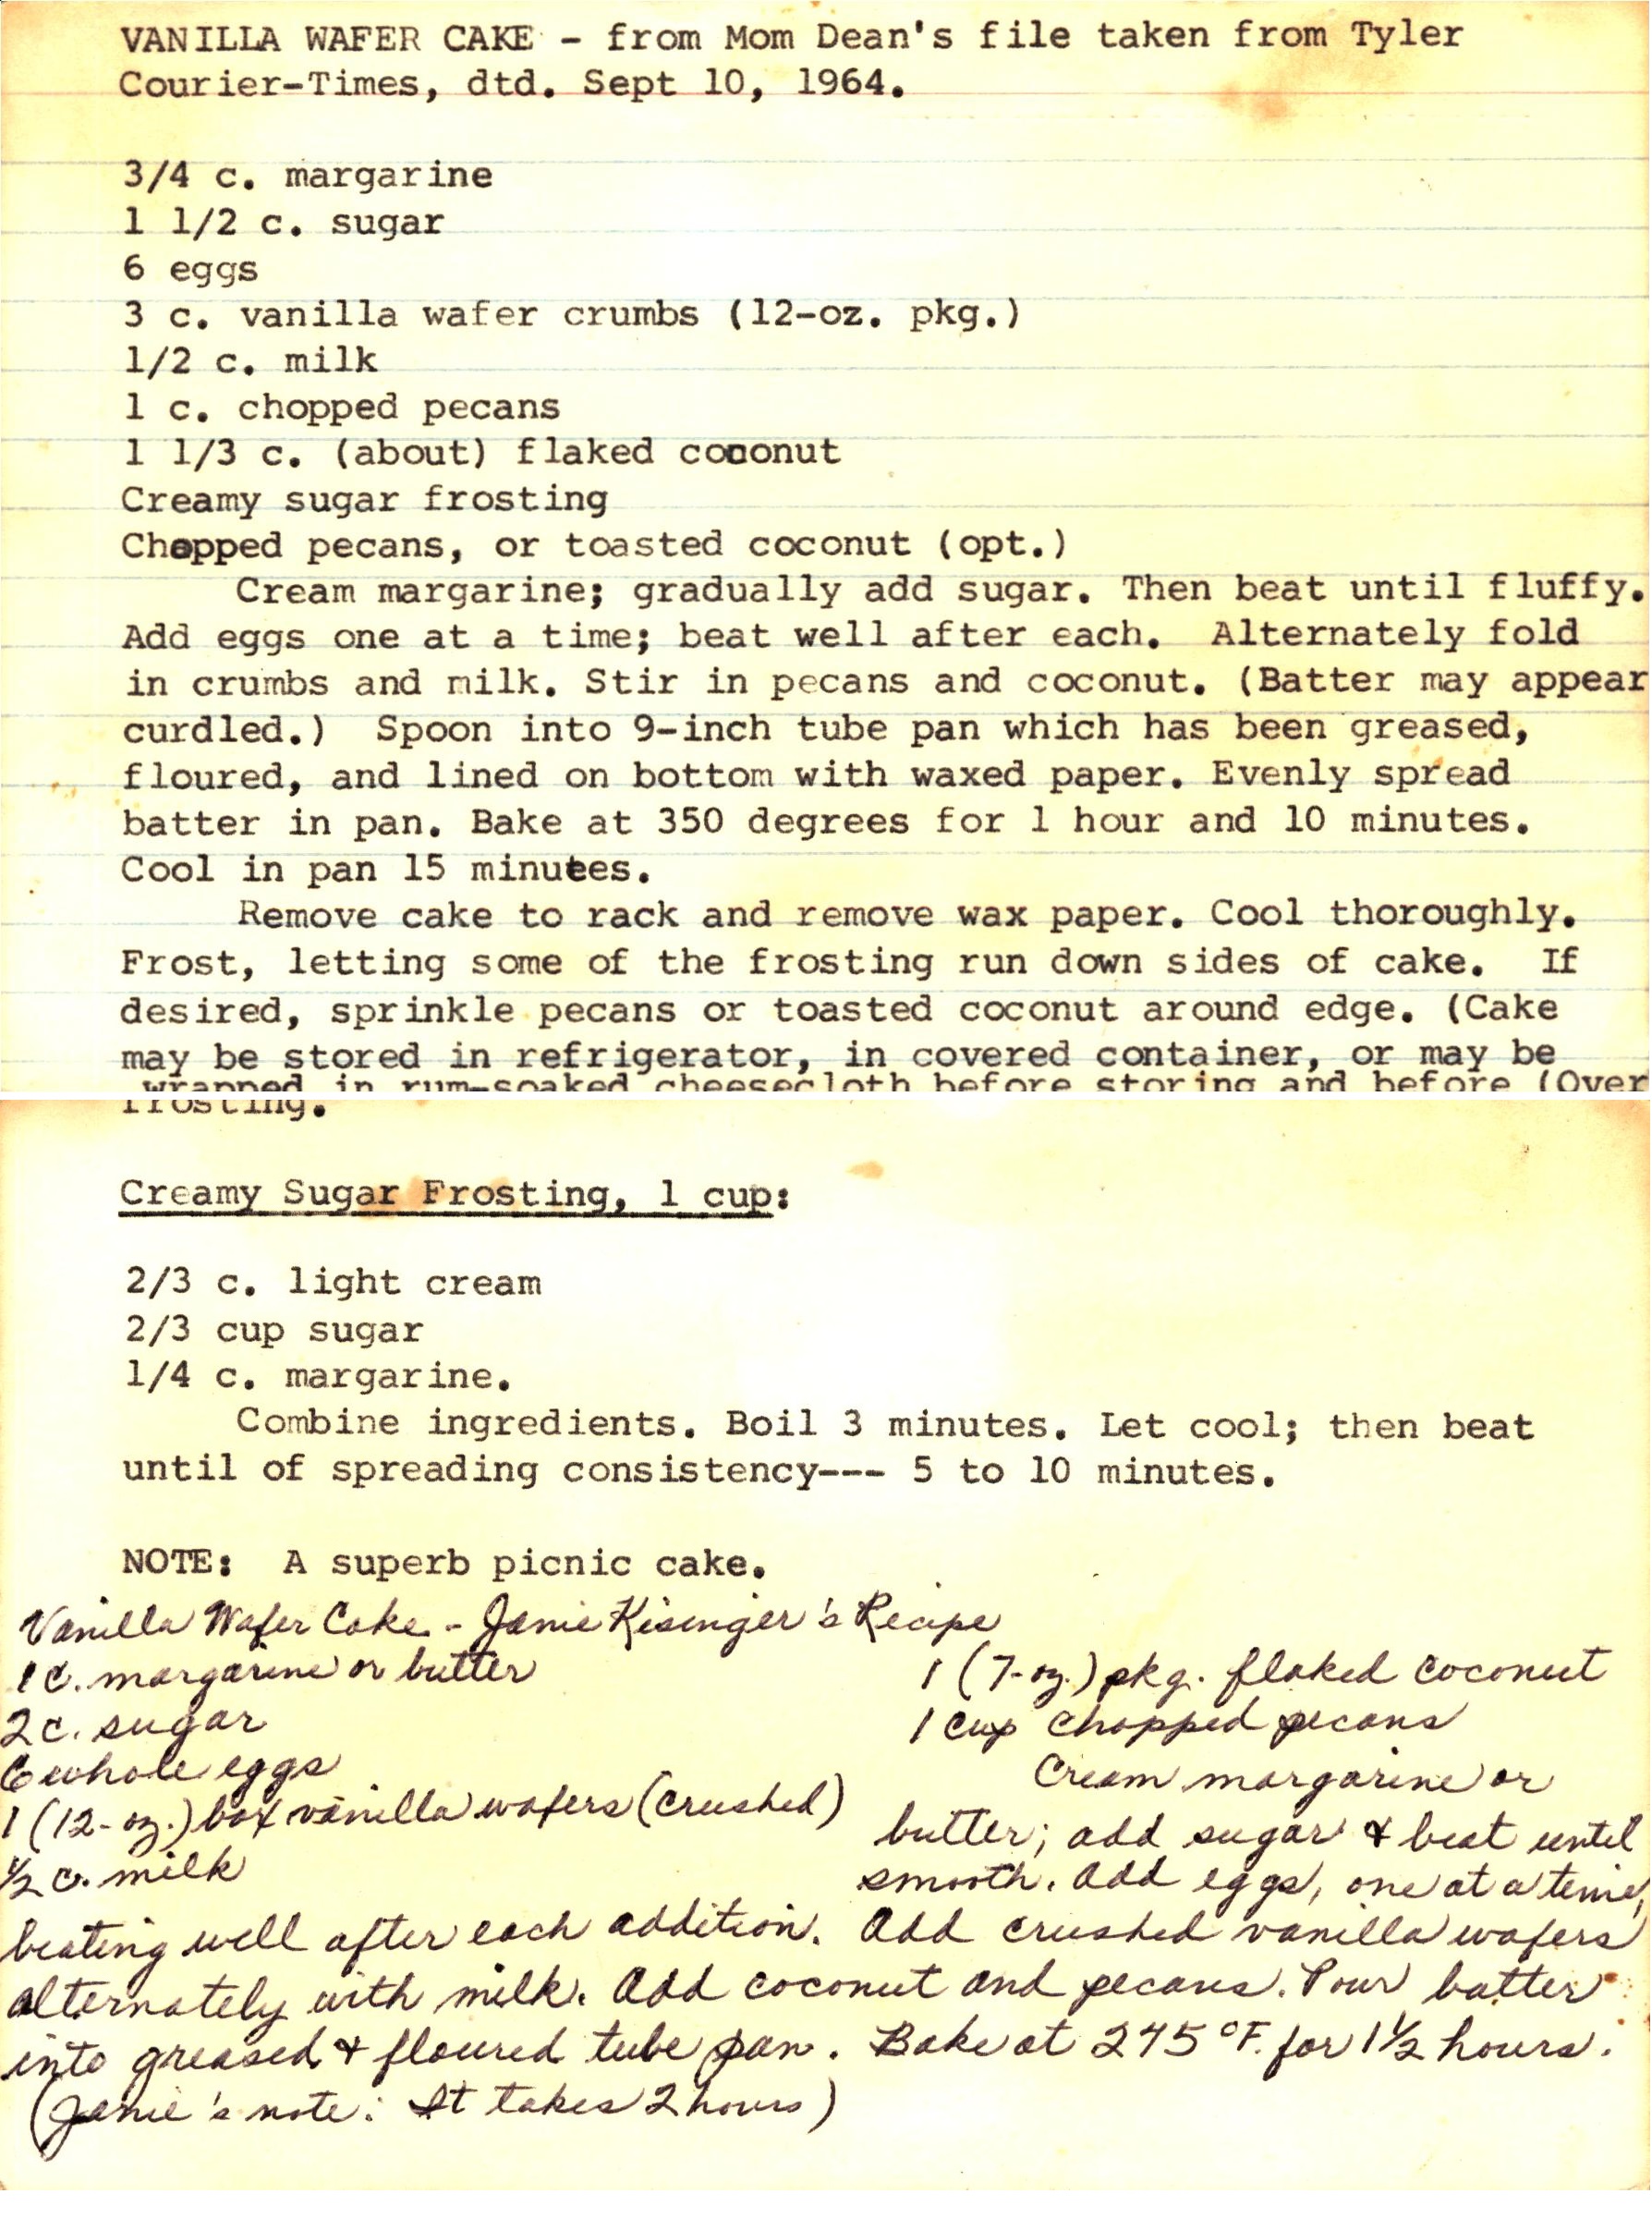 VANILLA WAFER CAKE - from Mom Dean's file taken from Tyler
Courier-Times, dtd. Sept 10, 1964.
3/4 c. margarine
1 1/2 c. sugar
6 eggs
3 c. vanilla wafer crumbs (12-oz. pkg.)
1/2 c. milk
1 c. chopped pecans
1 1/3 c. (about) flaked coconut
Creamy sugar frosting
Chopped pecans, or toasted coconut (opt.)
Cream margarine; gradually add sugar. Then beat until fluffy.
Add eggs one at a time; beat well after each. Alternately fold
in crumbs and milk. Stir in pecans and coconut. (Batter may appear
curdled.) Spoon into 9-inch tube pan which has been greased,
floured, and lined on bottom with waxed paper. Evenly spread
batter in pan. Bake at 350 degrees for 1 hour and 10 minutes.
Cool in pan 15 minutes.
Remove cake to rack and remove wax paper. Cool thoroughly.
Frost, letting some of the frosting run down sides of cake. If
desired, sprinkle pecans or toasted coconut around edge. (Cake
may be stored in refrigerator, in covered container, or may be
wrapped in rum-soaked cheesecloth before storing and before (Over
frosting.
Creamy Sugar Frosting, 1 cup:
2/3 c. light cream
2/3 cup sugar
1/4 c. margarine.
Combine ingredients. Boil 3 minutes. Let cool; then beat
until of spreading consistency--- 5 to 10 minutes.
NOTE: A superb picnic cake.
Vanilla Wafer Cake - Janie Kisinger's Recipe
1 c. margarine or butter
2 c. sugar
6 whole eggs
1 (12-oz.) box vanilla wafers (crushed)
1/2 c. milk
1 (7-oz.) pkg. flaked coconut
1 cup chopped pecans
Cream margarine or
butter; add sugar & beat until
smooth. Add eggs, one at a time,
beating well after each addition. Add crushed vanilla wafers
alternately with milk. Add coconut and pecans. Pour batter
into greased & floured tube pan. Bake at 275°F. for 1 1/2 hours.
(Janie's note: It takes 2 hours)